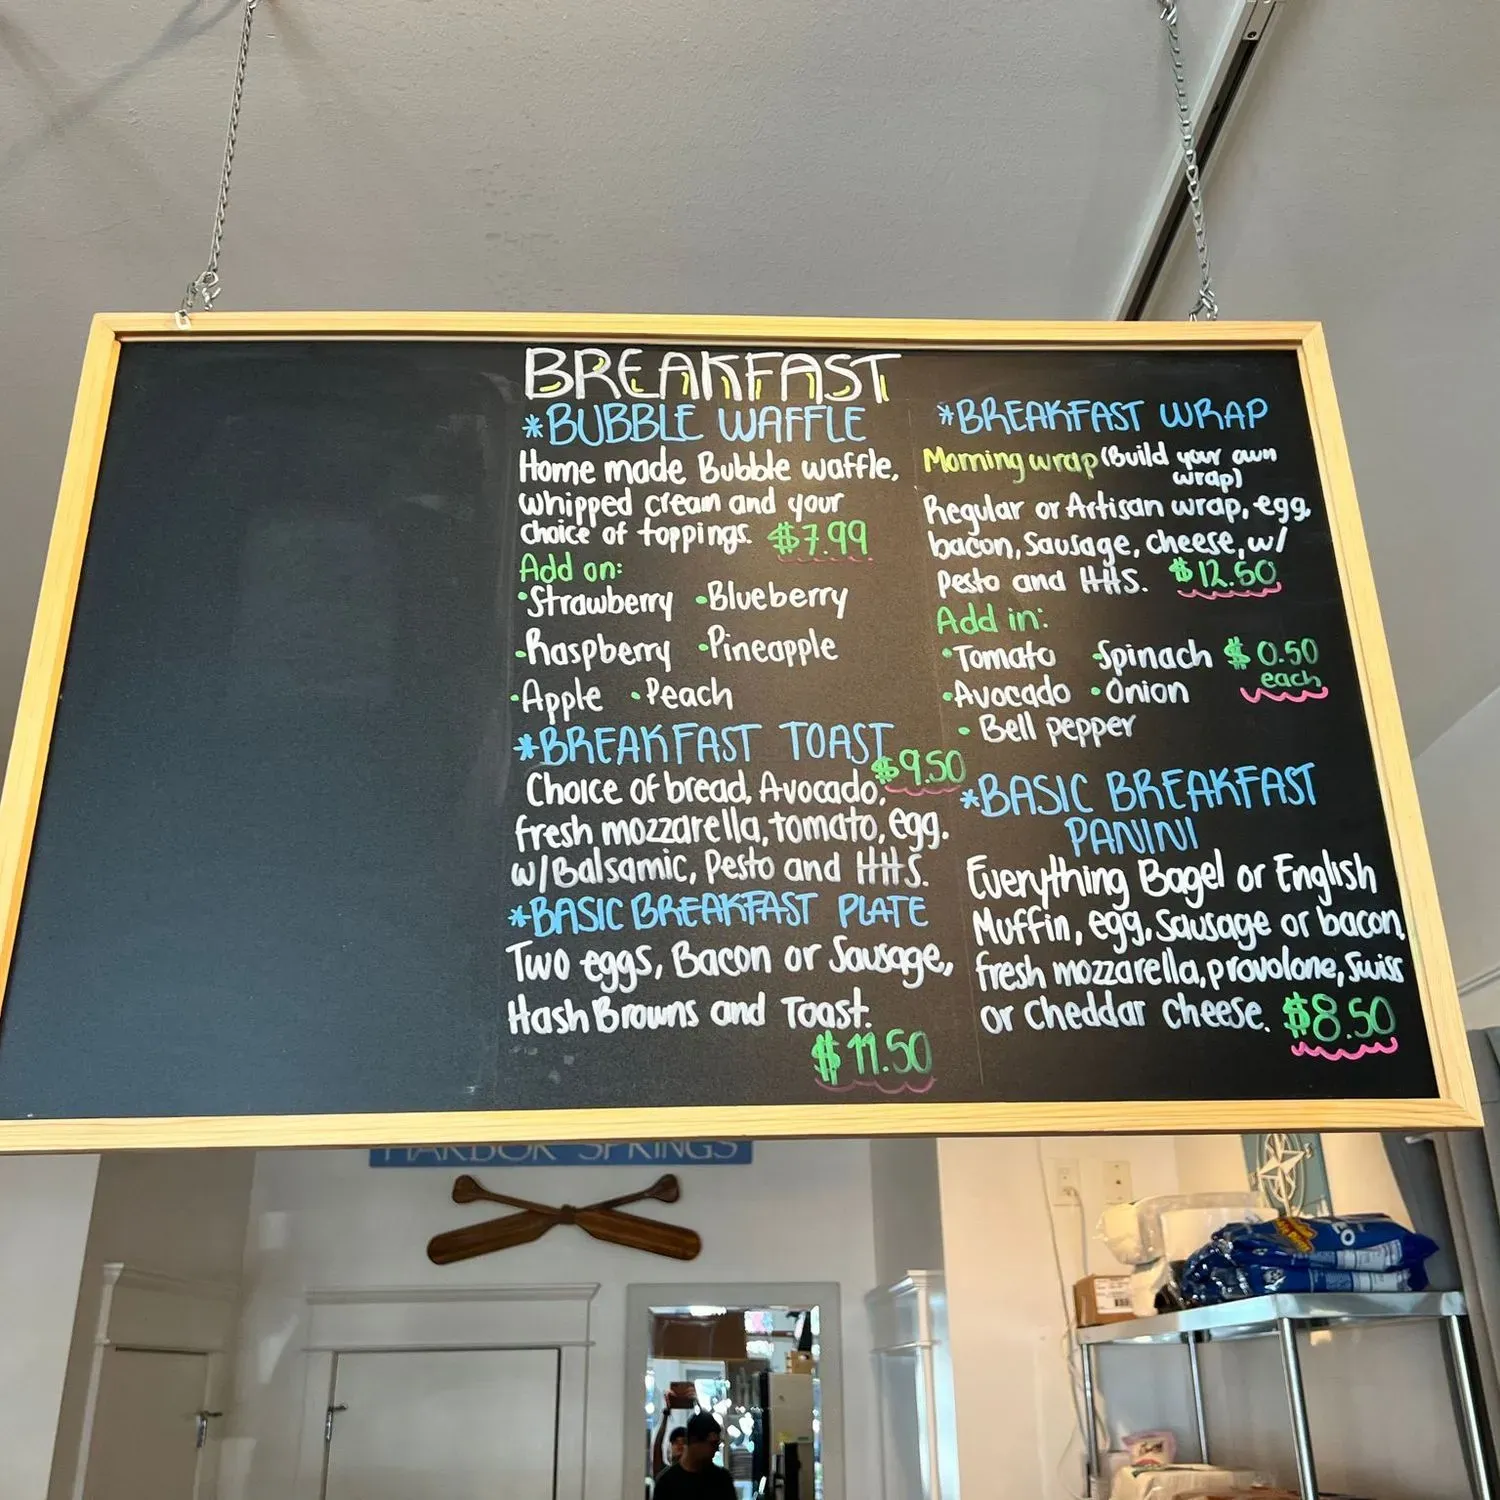 BREAKFAST
*BUBBLE WAFFLE
Home made Bubble waffle,
whipped cream and your
choice of toppings. $7.99
Add on:
•Strawberry •Blueberry
•Raspberry •Pineapple
•Apple •Peach
*BREAKFAST TOAST
$9.50
Choice of bread, Avocado,
fresh mozzarella, tomato, egg.
w/Balsamic, Pesto and HHS.
*BASIC BREAKFAST PLATE
Two eggs, Bacon or Sausage,
Hash Browns and Toast.
$11.50
*BREAKFAST WRAP
Morning wrap (Build your own
wrap)
Regular or Artisan wrap, egg,
bacon, Sausage, cheese, w/
Pesto and HHS. $12.50
Add in:
•Tomato •Spinach $0.50
each
•Avocado •Onion
•Bell pepper
*BASIC BREAKFAST
PANINI
Everything Bagel or English
Muffin, egg, Sausage or bacon,
fresh mozzarella, provolone, Swiss
or Cheddar cheese. $8.50
HARBOR SPRINGS